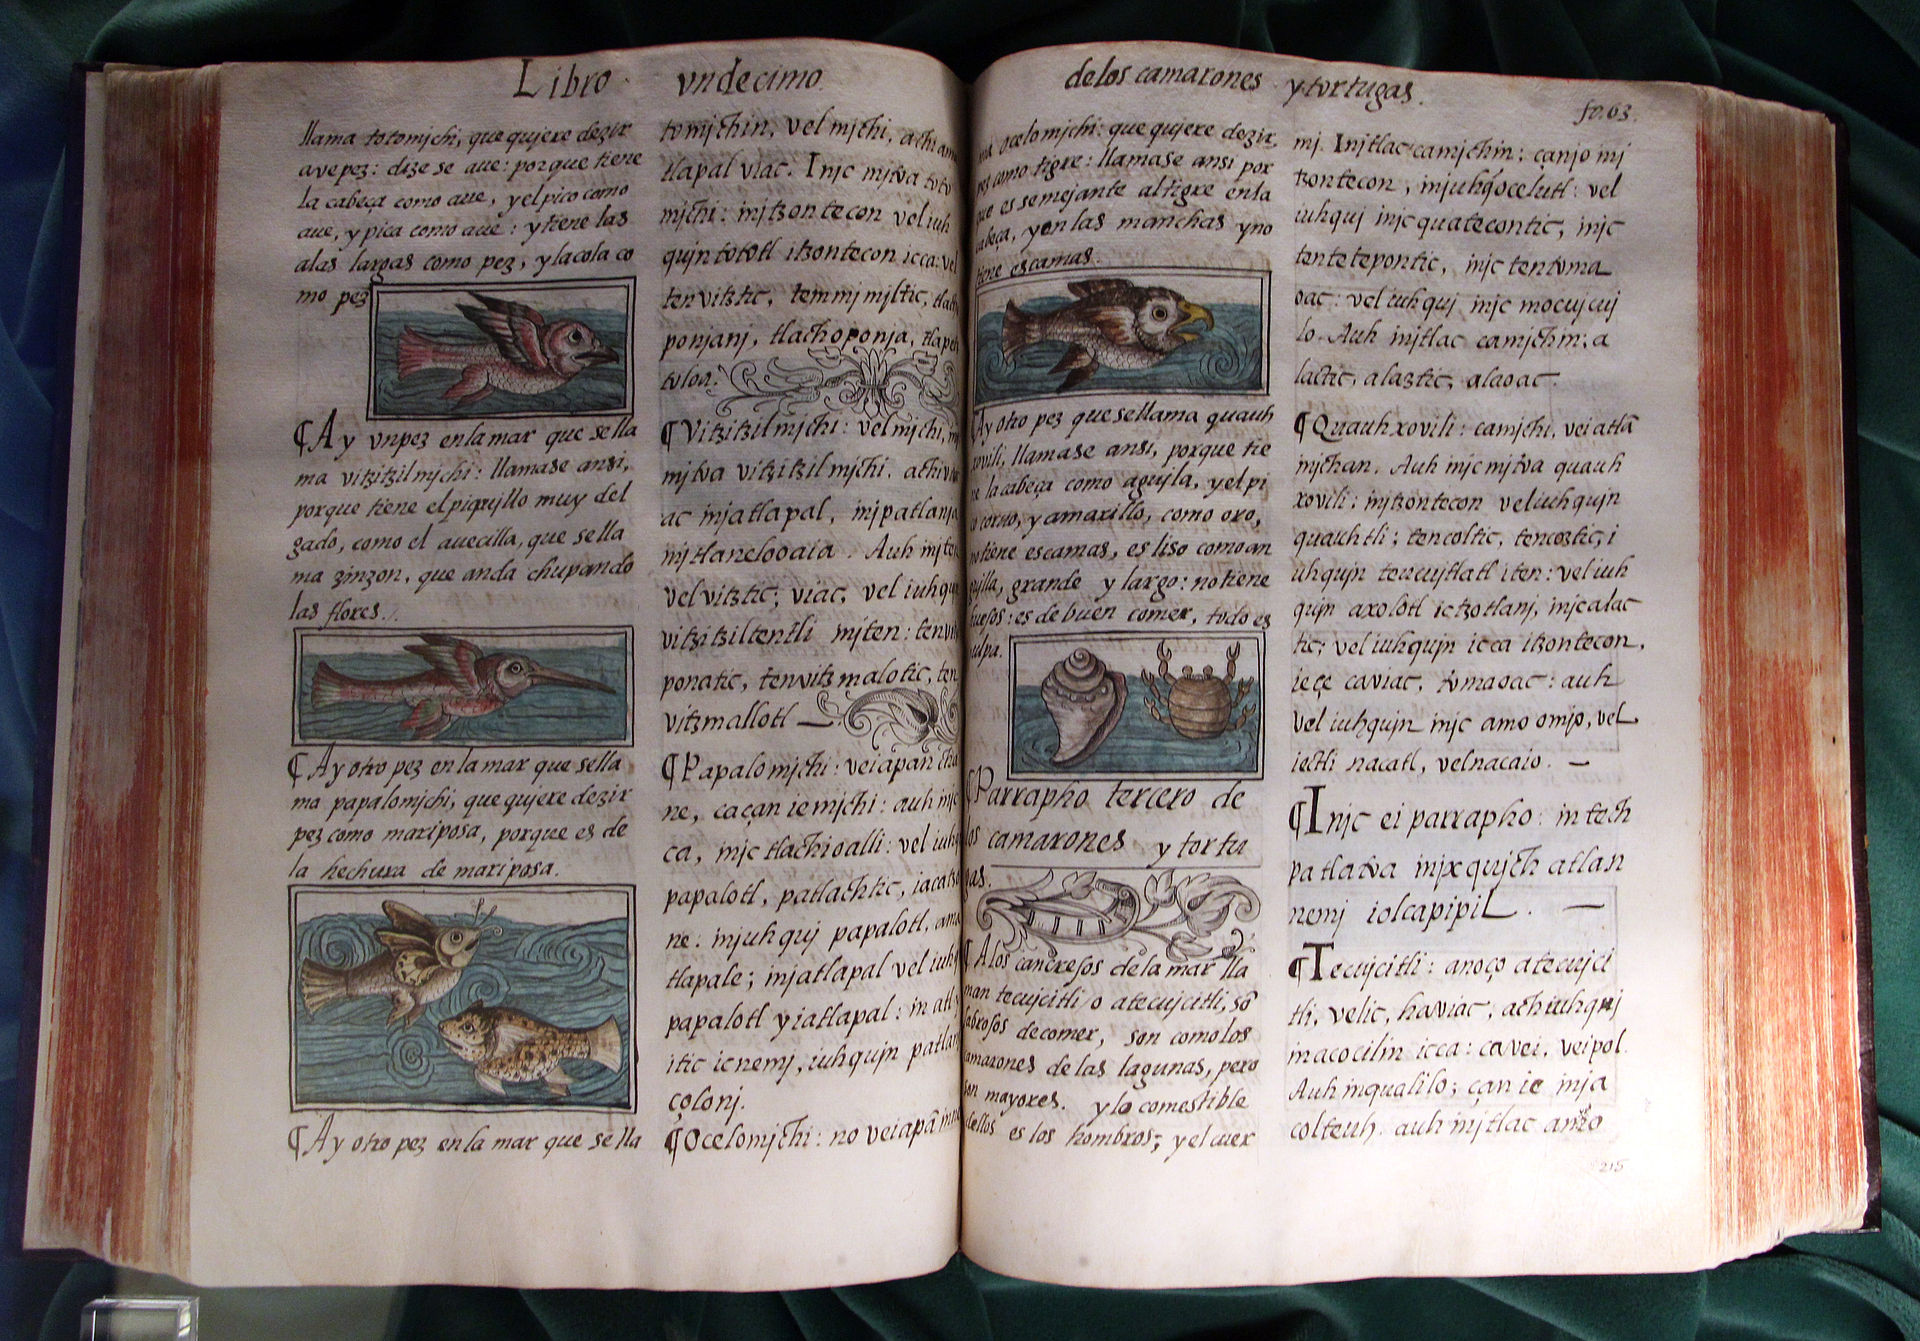 Libro undecimo
llama totomjchi, que qujere dezir
ave pez: dize se aue: porque tiene
la cabeça como aue, y el pico como
aue, y pica como aue: y tiene las
alas largas como pez, y la cola co
mo pez
¶ Ay vn pez en la mar que se lla
ma vitzitzilmjchi: llamase ansi,
porque tiene el piqujllo muy del
gado, como el auecilla, que se lla
ma zinzon, que anda chupando
las flores.
¶ Ay otro pez en la mar que se lla
ma papalomjchi, que qujere dezir
pez como mariposa, porque es de
la hechura de mariposa.
¶ Ay otro pez en la mar que se lla
tomjchin, vel mjchi, achi
tlapal viac. Injc mjtva toto
mjchi: injtzontecon vel iuh
qujn tototl itzontecon icca: vel
tenvitztic, temmjmjltic,
ponjanj, tlachoponja,
tuloa.
¶ Vitzitzilmjchi: vel mjchi,
mjtva vitzitzilmjchi. achi
ac injatlapal, injpatlanja
injtlanelooaia. Auh injten
vel vitztic; viac, vel iuhqujn
vitzitziltentli injten:
ponatic, tenvitzmalotic, ten
vitzmallotl —
¶ Papalomjchi: veiapan
ne, caçan ie mjchi: auh injc
ca, injc tlachioalli: vel iuhqu
papalotl, patlachtic,
ne: injuhquj papalotl,
tlapale; injatlapal vel iuhq
papalotl yiatlapal: in atl
itic ic nemj, iuhqujn patlan
çolonj.
¶ Ocelomjchi: no veiapã
de los camarones y tortugas.
fo. 63.
ma ocelomjchi: que qujere dezir,
pez como tigre: llamase ansi por
que es semejante al tigre en la
cabeça, y en las manchas y no
tiene escamas.
Ay otro pez que se llama quauh
xovili, llamase ansi, porque tie
ne la cabeça como agujla, y el pi
co corvo, y amarillo, como oro,
no tiene escamas, es liso como an
guilla, grande y largo: no tiene
huesos: es de buen comer, todo es
pulpa.
¶ Parrapho tercero de
los camarones y tortu
gas.
¶ A los cancresos de la mar lla
man tecujcitli o atecujcitli, sõ
sabrosos de comer, son como los
camarones de las lagunas, pero
son mayores. y lo comestible
dellos es los hombros; y el cuer
mj. Injtlac ca mjchin: çanjo inj
tzontecon, injuhqujocelutl: vel
iuhquj injc quatecontic, injc
tentetepontic, injc tentoma
oac: vel iuhquj injc mocujcuj
lo. Auh injtlac ca mjchin; a
lactic, alaztic, alaoac.
¶ Quauhxovili: ca mjchi, vei atlã
mjchan. Auh injc mjtva quauh
xovili: injtzontecon vel iuhqujn
quauhtli; tencoltic, tencoztic, i
uhqujn teucujtlatl iten: vel iuh
qujn axolotl ic tzotlanj, injc alac
tic; vel iuhqujn icca itzontecon,
iece ca viac, tomaoac: auh
vel iuhqujn injc amo omjo, vel
iectli nacatl, vel nacaio. —
¶ Injc ei parrapho: intech
patlatva injxqujch atlan
nemj iolcapipil. —
¶ Tecujcitli: anoço atecujci
tli, velic, haviac, achiuhquj
inacocilin icca: ca vei, veipol.
Auh inqualilo; çan ie inja
colteuh. auh injtlac amo
215